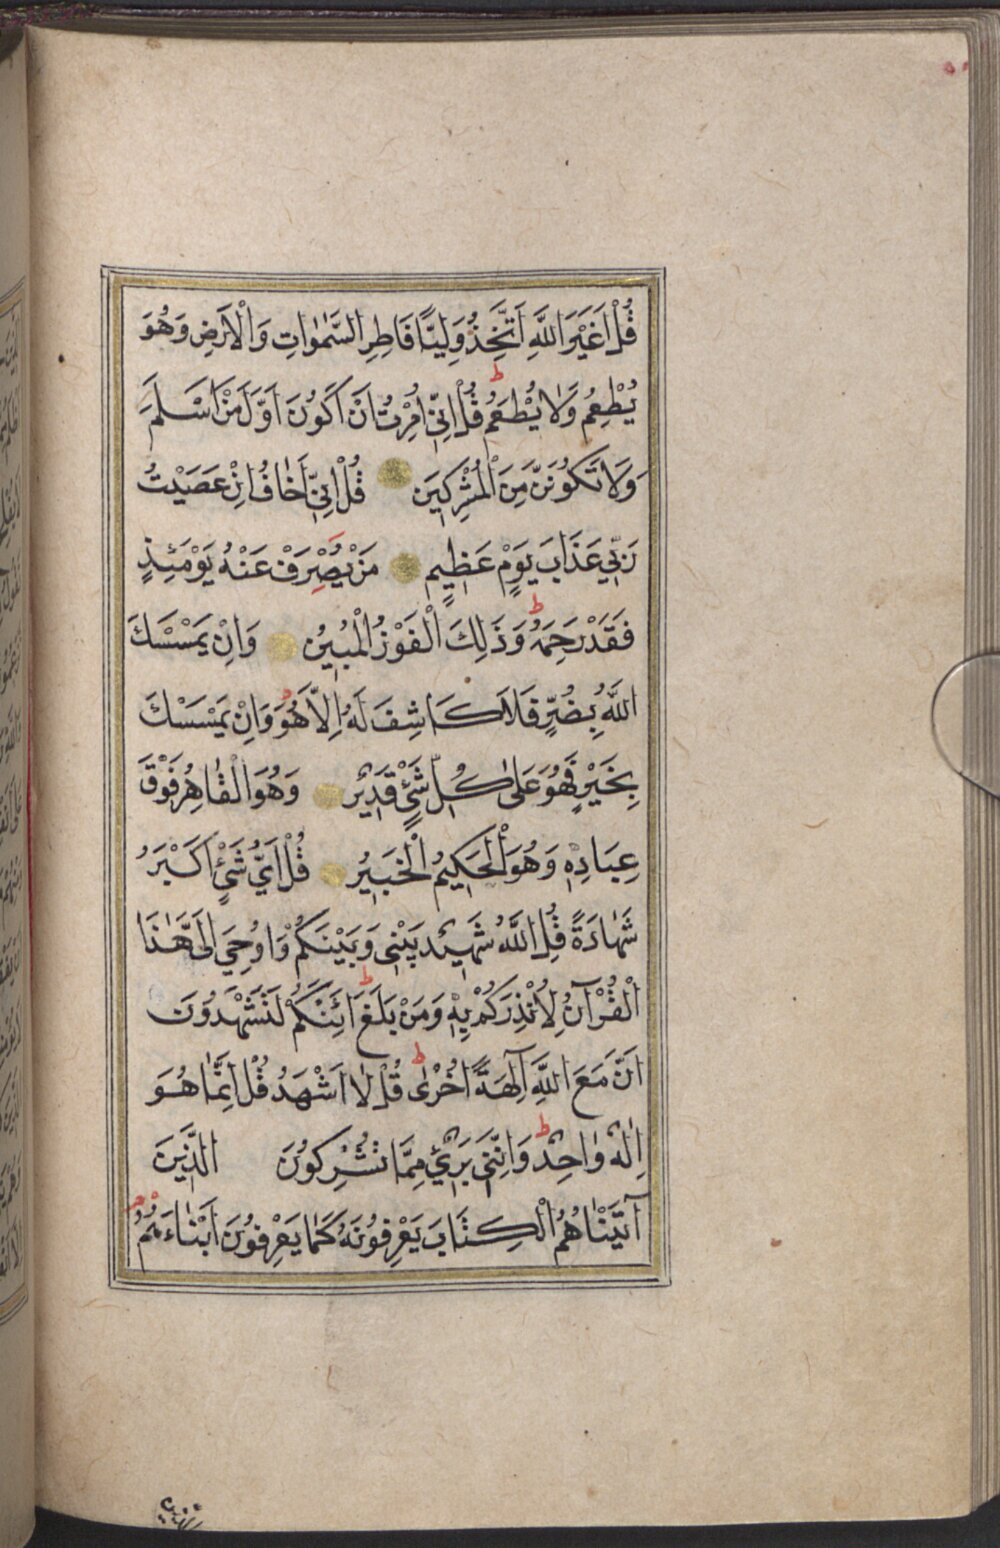 قُلْ اَغَيْرَ اللّٰهِ اَتَّخِذُ وَلِيًّا فَاطِرِ السَّمٰوَاتِ وَالْاَرْضِ وَهُوَ
يُطْعِمُ وَلَا يُطْعَمُ ط قُلْ اِنِّي اُمِرْتُ اَنْ اَكُونَ اَوَّلَ مَنْ اَسْلَمَ
وَلَا تَكُونَنَّ مِنَ الْمُشْرِكِينَ قُلْ اِنِّي اَخَافُ اِنْ عَصَيْتُ
رَبِّي عَذَابَ يَوْمٍ عَظِيمٍ مَنْ يُصْرَفْ عَنْهُ يَوْمَئِذٍ
فَقَدْ رَحِمَهُ ط وَذَلِكَ الْفَوْزُ الْمُبِينُ وَاِنْ يَمْسَسْكَ
اللّٰهُ بِضُرٍّ فَلَا كَاشِفَ لَهُ اِلَّا هُوَ وَاِنْ يَمْسَسْكَ
بِخَيْرٍ فَهُوَ عَلٰى كُلِّ شَيْءٍ قَدِيرٌ وَهُوَ الْقَاهِرُ فَوْقَ
عِبَادِهِ وَهُوَ الْحَكِيمُ الْخَبِيرُ قُلْ اَيُّ شَيْءٍ اَكْبَرُ
شَهَادَةً قُلِ اللّٰهُ شَهِيدٌ بَيْنِي وَبَيْنَكُمْ وَاُوحِيَ اِلَيَّ هٰذَا
الْقُرْآنُ لِاُنْذِرَكُمْ بِهِ وَمَنْ بَلَغَ ط اَئِنَّكُمْ لَتَشْهَدُونَ
اَنَّ مَعَ اللّٰهِ آلِهَةً اُخْرٰى ط قُلْ لَا اَشْهَدُ قُلْ اِنَّمَا هُوَ
اِلٰهٌ وَاحِدٌ ط وَاِنَّنِي بَرِيءٌ مِمَّا تُشْرِكُونَ الَّذِينَ
آتَيْنَاهُمُ الْكِتَابَ يَعْرِفُونَهُ كَمَا يَعْرِفُونَ اَبْنَاءَهُمْ م
الذين